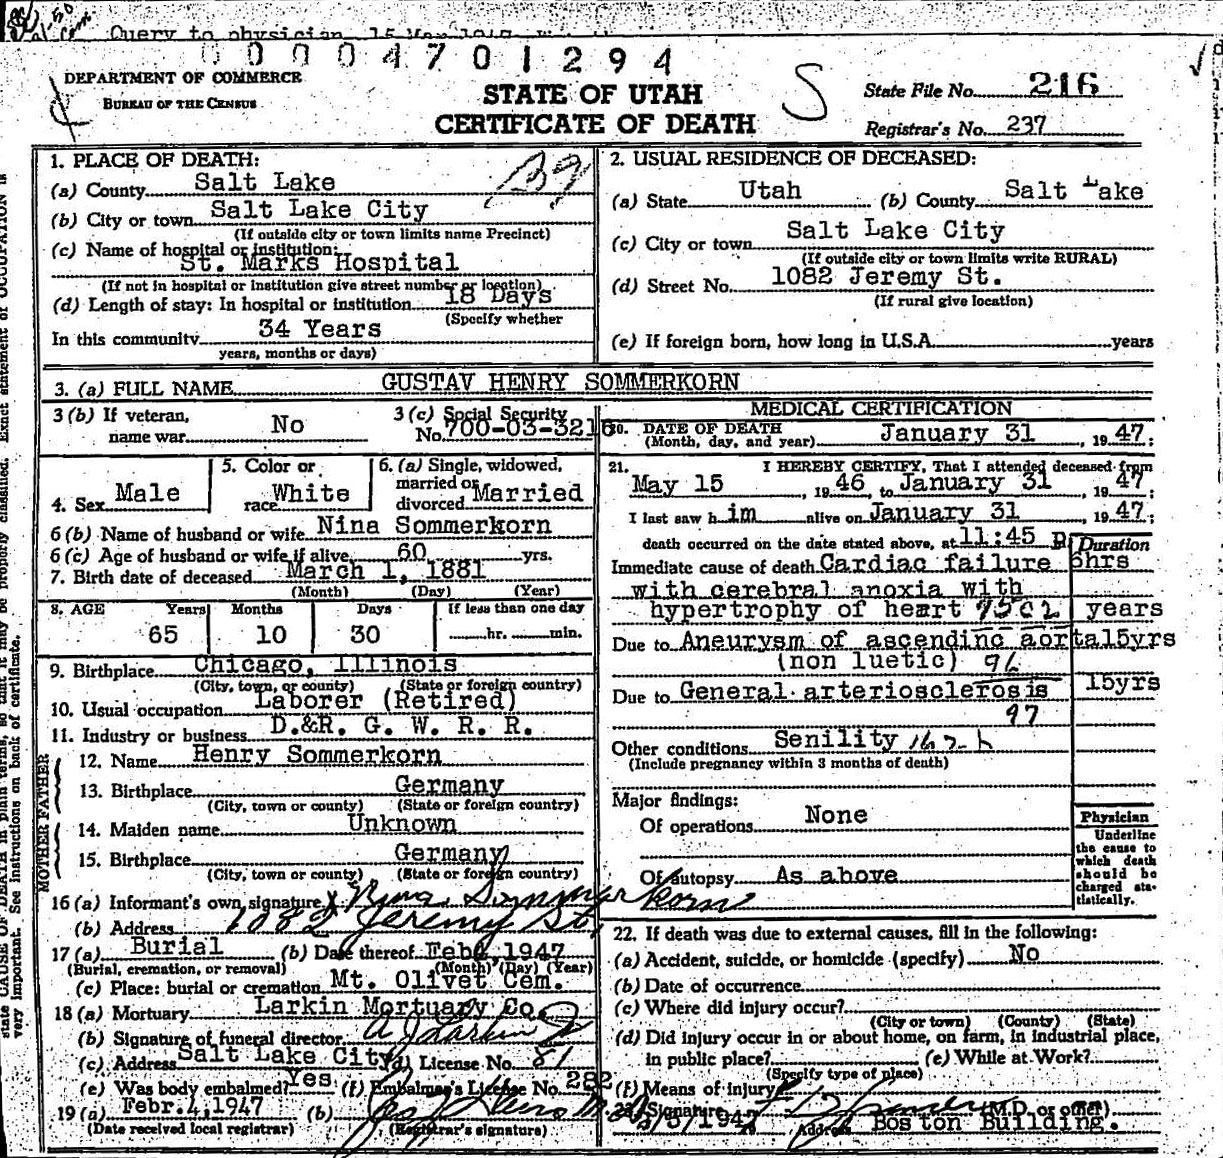 Query to physician 15
0 0 0 4 7 0 1 2 9 4
DEPARTMENT OF COMMERCE
BUREAU OF THE CENSUS
STATE OF UTAH
CERTIFICATE OF DEATH
S
State File No. 216
Registrar's No. 237
1. PLACE OF DEATH:
39
(a) County Salt Lake
(b) City or town Salt Lake City
(If outside city or town limits name Precinct)
(c) Name of hospital or institution:
St. Marks Hospital
(If not in hospital or institution give street number or location)
(d) Length of stay: In hospital or institution 18 Days
(Specify whether
In this community 34 Years
years, months or days)
2. USUAL RESIDENCE OF DECEASED:
(a) State Utah (b) County Salt Lake
(c) City or town Salt Lake City
(If outside city or town limits write RURAL)
(d) Street No. 1082 Jeremy St.
(If rural give location)
(e) If foreign born, how long in U.S.A. years
3. (a) FULL NAME GUSTAV HENRY SOMMERKORN
3 (b) If veteran, name war No
3 (c) Social Security No. 700-03-3216
4. Sex Male
5. Color or race White
6. (a) Single, widowed, married or divorced Married
6 (b) Name of husband or wife Nina Sommerkorn
6 (c) Age of husband or wife if alive 60 yrs.
7. Birth date of deceased March 1, 1881
(Month) (Day) (Year)
8. AGE Years Months Days If less than one day
65 10 30 hr. min.
9. Birthplace Chicago, Illinois
(City, town, or county) (State or foreign country)
10. Usual occupation Laborer (Retired)
11. Industry or business D.&R. G. W. R. R.
FATHER
12. Name Henry Sommerkorn
13. Birthplace Germany
(City, town or county) (State or foreign country)
MOTHER
14. Maiden name Unknown
15. Birthplace Germany
(City, town or county) (State or foreign country)
16 (a) Informant's own signature x Nina Sommerkorn
(b) Address 1082 Jeremy St,
17 (a) Burial (b) Date thereof Feb 1947
(Burial, cremation, or removal) (Month) (Day) (Year)
(c) Place: burial or cremation Mt. Olivet Cem.
18 (a) Mortuary Larkin Mortuary Co.
(b) Signature of funeral director A J Larkin Jr
(c) Address Salt Lake City (d) License No. 81
(e) Was body embalmed? Yes (f) Embalmer's License No. 282
19 (a) Febr. 4, 1947 (b)
(Date received local registrar) (Registrar's signature)
MEDICAL CERTIFICATION
20. DATE OF DEATH
(Month, day, and year) January 31, 1947;
21. I HEREBY CERTIFY, That I attended deceased from
May 15, 1946 to January 31, 1947;
I last saw him alive on January 31, 1947;
death occurred on the date stated above, at 11:45 P
Duration
Immediate cause of death Cardiac failure 6hrs
with cerebral anoxia with
hypertrophy of heart years
Due to Aneurysm of ascendinc aorta 15yrs
(non luetic) 96
Due to General arteriosclerosis 15yrs
97
Other conditions Senility 162-b
(Include pregnancy within 3 months of death)
Major findings:
Of operations None
Of autopsy As above
Physician
Underline
the cause to
which death
should be
charged sta-
tistically.
22. If death was due to external causes, fill in the following:
(a) Accident, suicide, or homicide (specify) No
(b) Date of occurrence
(c) Where did injury occur?
(City or town) (County) (State)
(d) Did injury occur in or about home, on farm, in industrial place,
in public place? (e) While at Work?
(Specify type of place)
(f) Means of injury
23. Signature (M.D. or other)
/3/1947 Address Boston Building.
CAUSE OF DEATH in plain terms, so that it may be properly classified. Exact statement of OCCUPATION is
very important. See instructions on back of certificate.